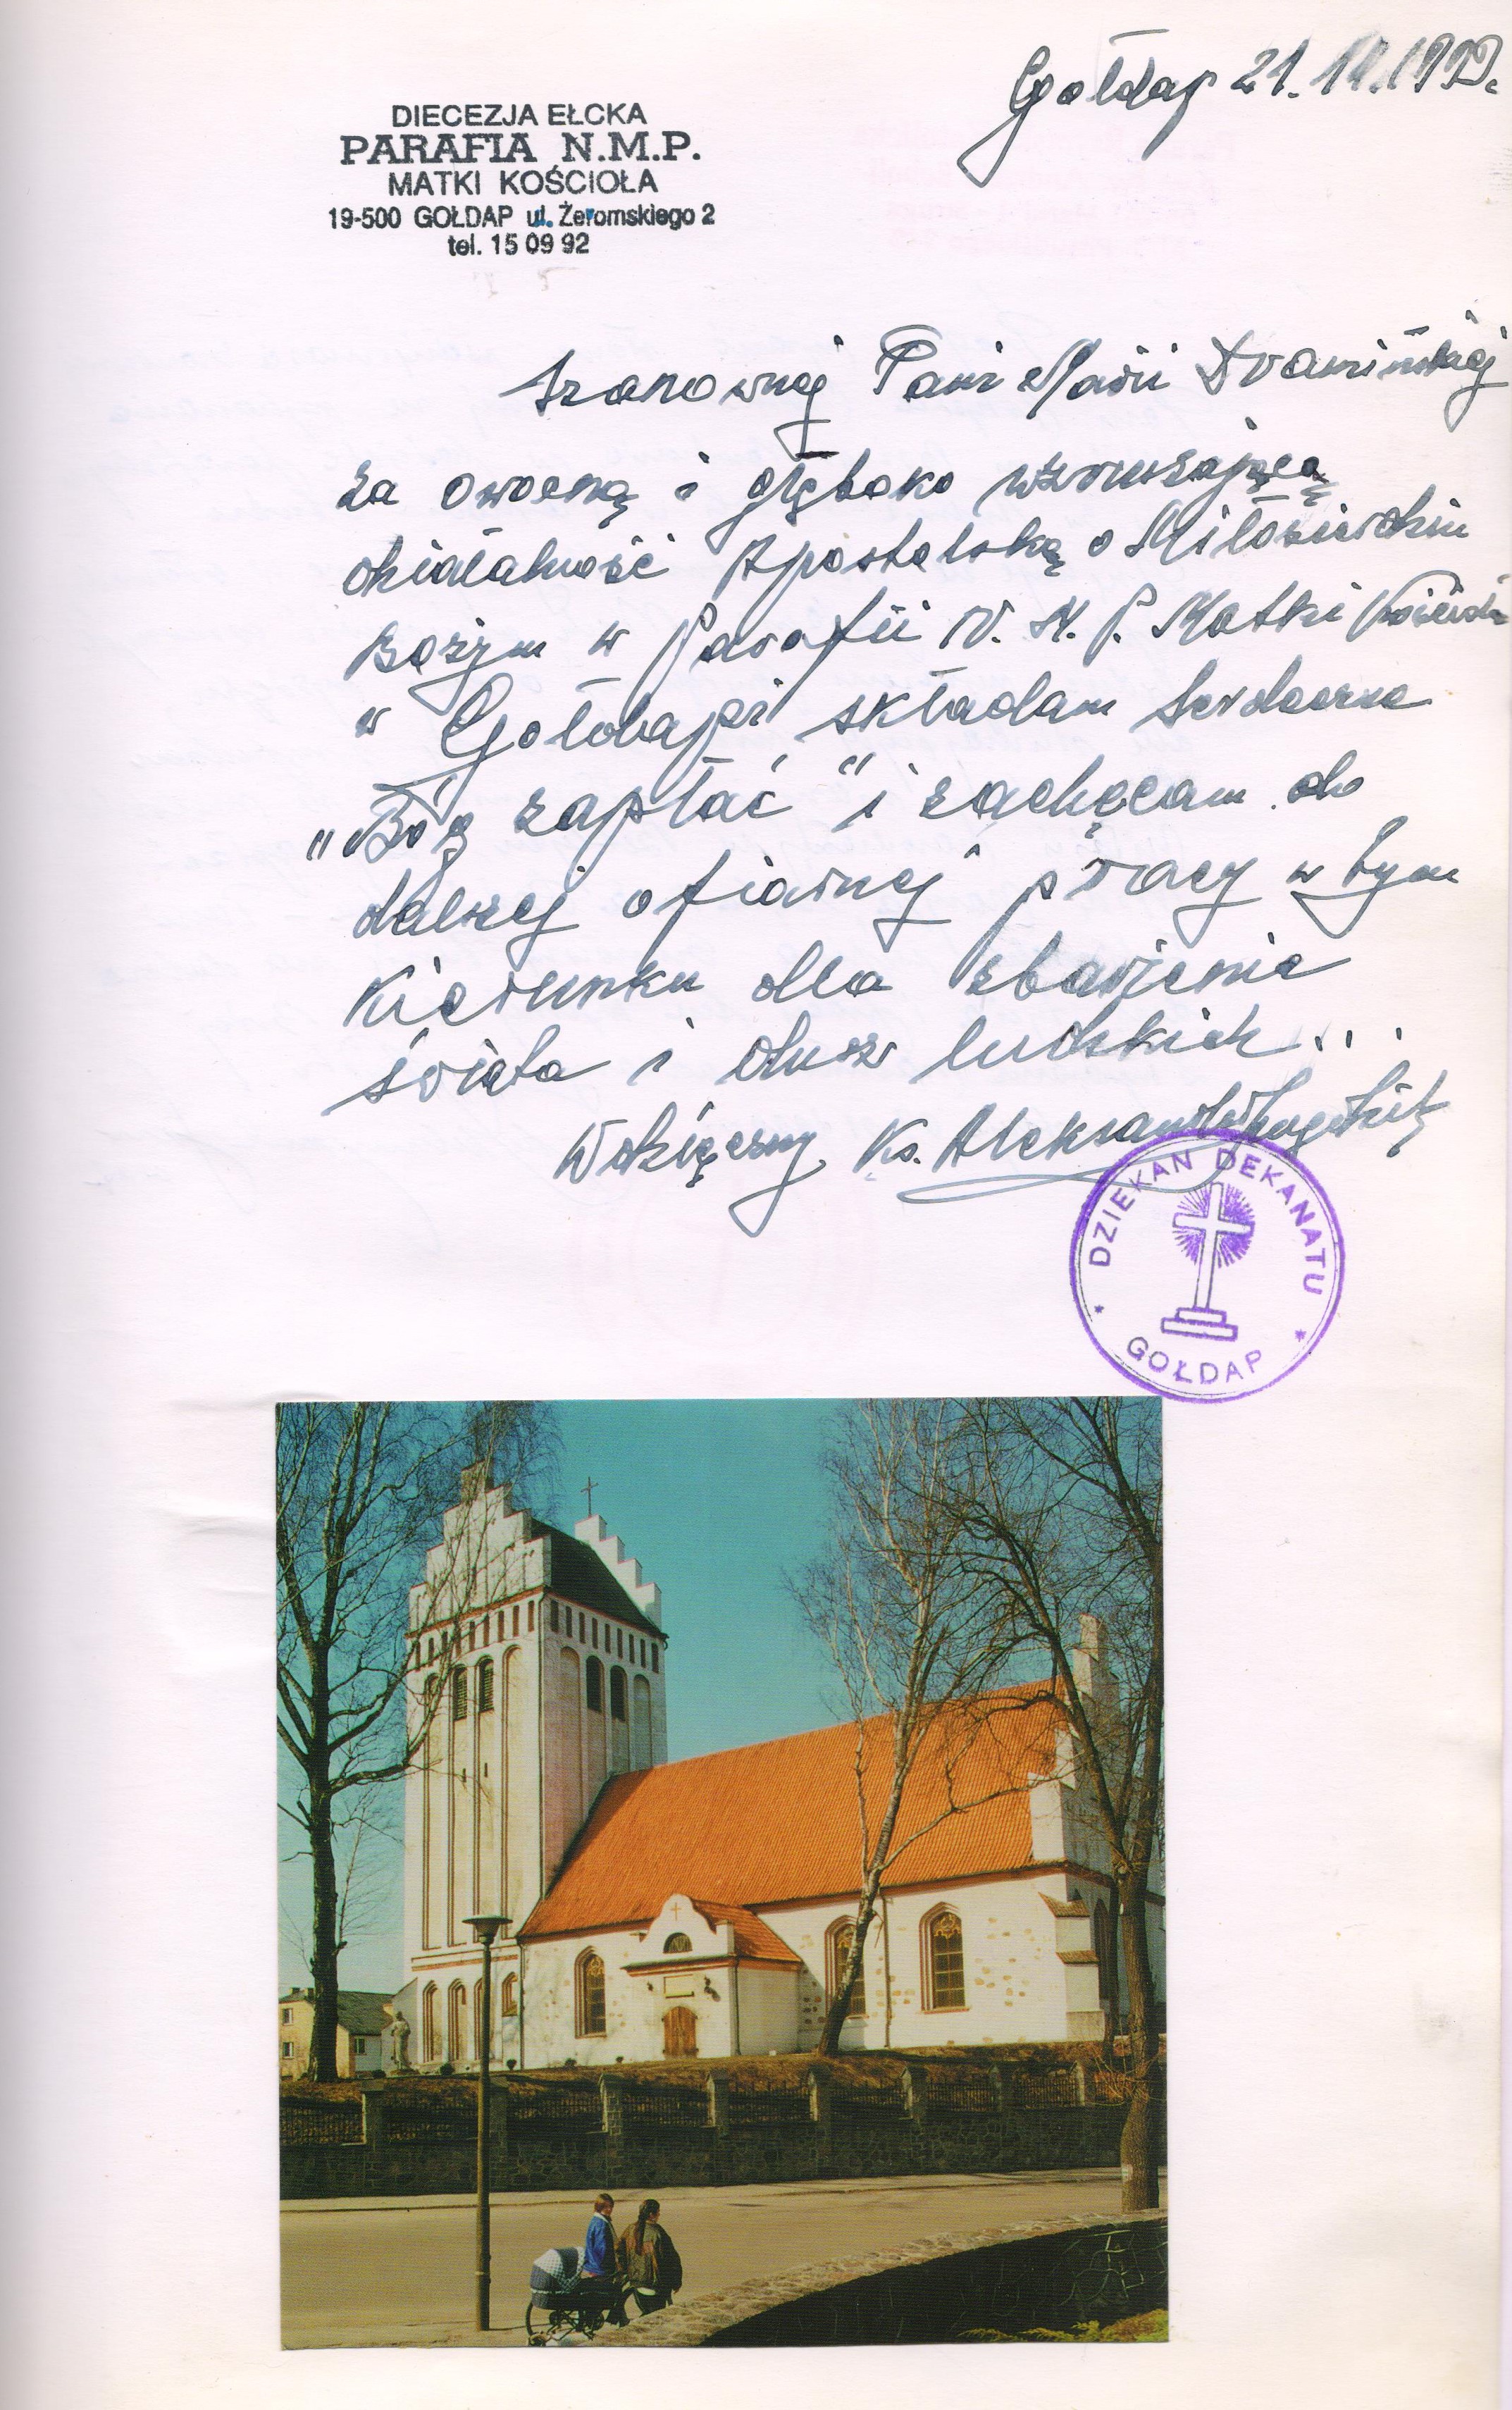 Gołdap 21.
DIECEZJA EŁCKA
PARAFIA N.M.P.
MATKI KOŚCIOŁA
19-500 GOŁDAP ul. Żeromskiego 2
tel. 15 09 92
Szanownej Pani Marii
za owocną i głęboko wzruszającą
działalność Apostolską o Miłosierdziu
Bożym w Parafii N. M. P. Matki Kościoła
w Gołdapi składam serdeczne
"Bóg zapłać" i zachęcam do
dalszej ofiarnej pracy w tym
kierunku dla zbawienia
świata i dusz ludzkich...
Wdzięczny Ks. Aleksander
DZIEKAN DEKANATU
* GOŁDAP *